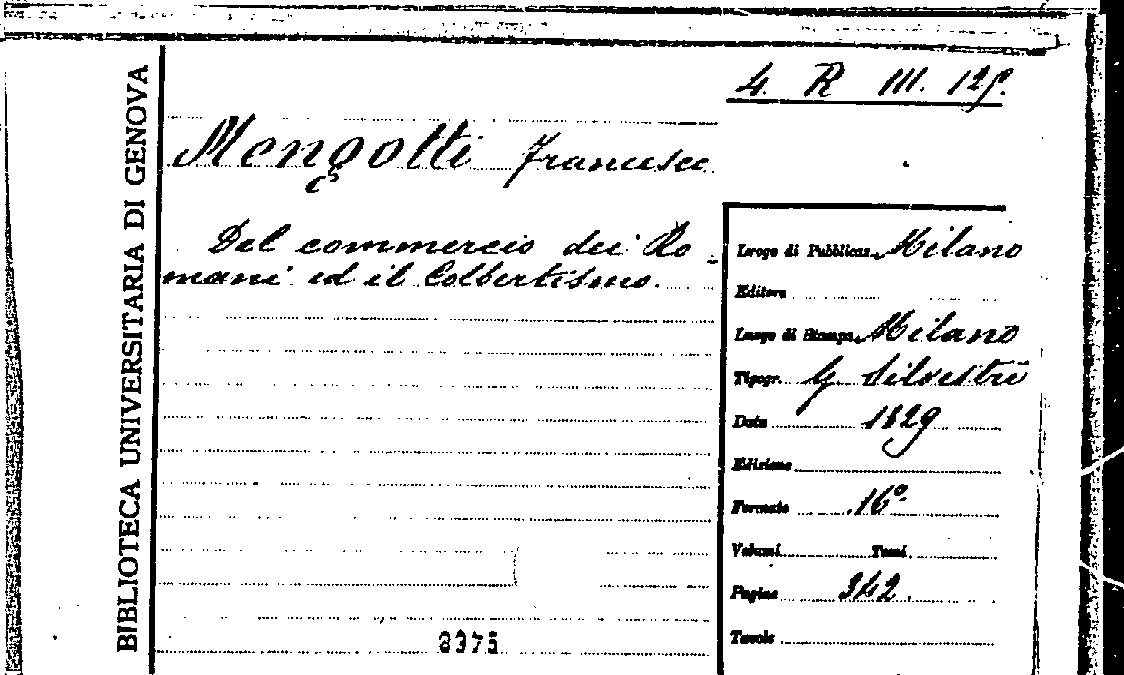 BIBLIOTECA UNIVERSITARIA DI GENOVA
4. R III. 129.
Mengotti Francesco
Del commercio dei Ro-
mani ed il Colbertismo.
Luogo di Pubblicaz. Milano
Editore
Luogo di Stampa Milano
Tipogr. G Silvestri
Data 1829
Edizione
Formato 16°.
Volumi Tomi
Pagine 342.
Tavole